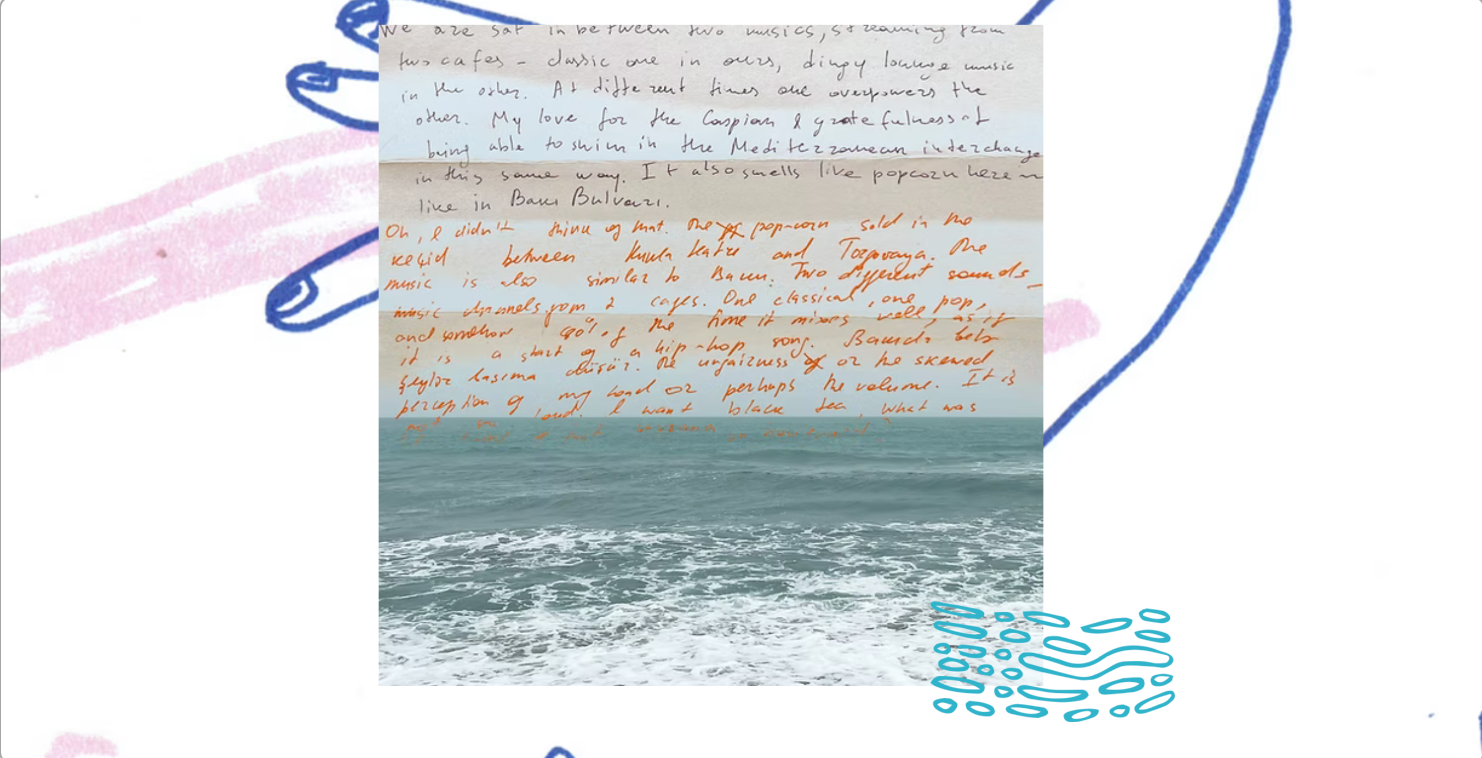 We are sat in between two musics, streaming from
two cafes - classic one in ours, dingy lounge music
in the other. At different times one overpowers the
other. My love for the Caspian & gratefulness of
being able to swim in the Mediterranean interchange
in this same way. It also smells like popcorn here
like in Baku Bulvarı.
Oh, I didn't think of that. The pop-corn sold in the
keçid between Kukla Teatrı and Torgovaya. The
music is also similar to Baku. Two different sounds_
music channels from 2 cafes. One classical, one pop,
and somehow 90% of the time it mixes well, as if
it is a start of a hip-hop song. Bakıda belə
şeylər basıma düşür. The unfairness or the skewed
perception of my head or perhaps the volume. It is
loud. I want black tea, what was